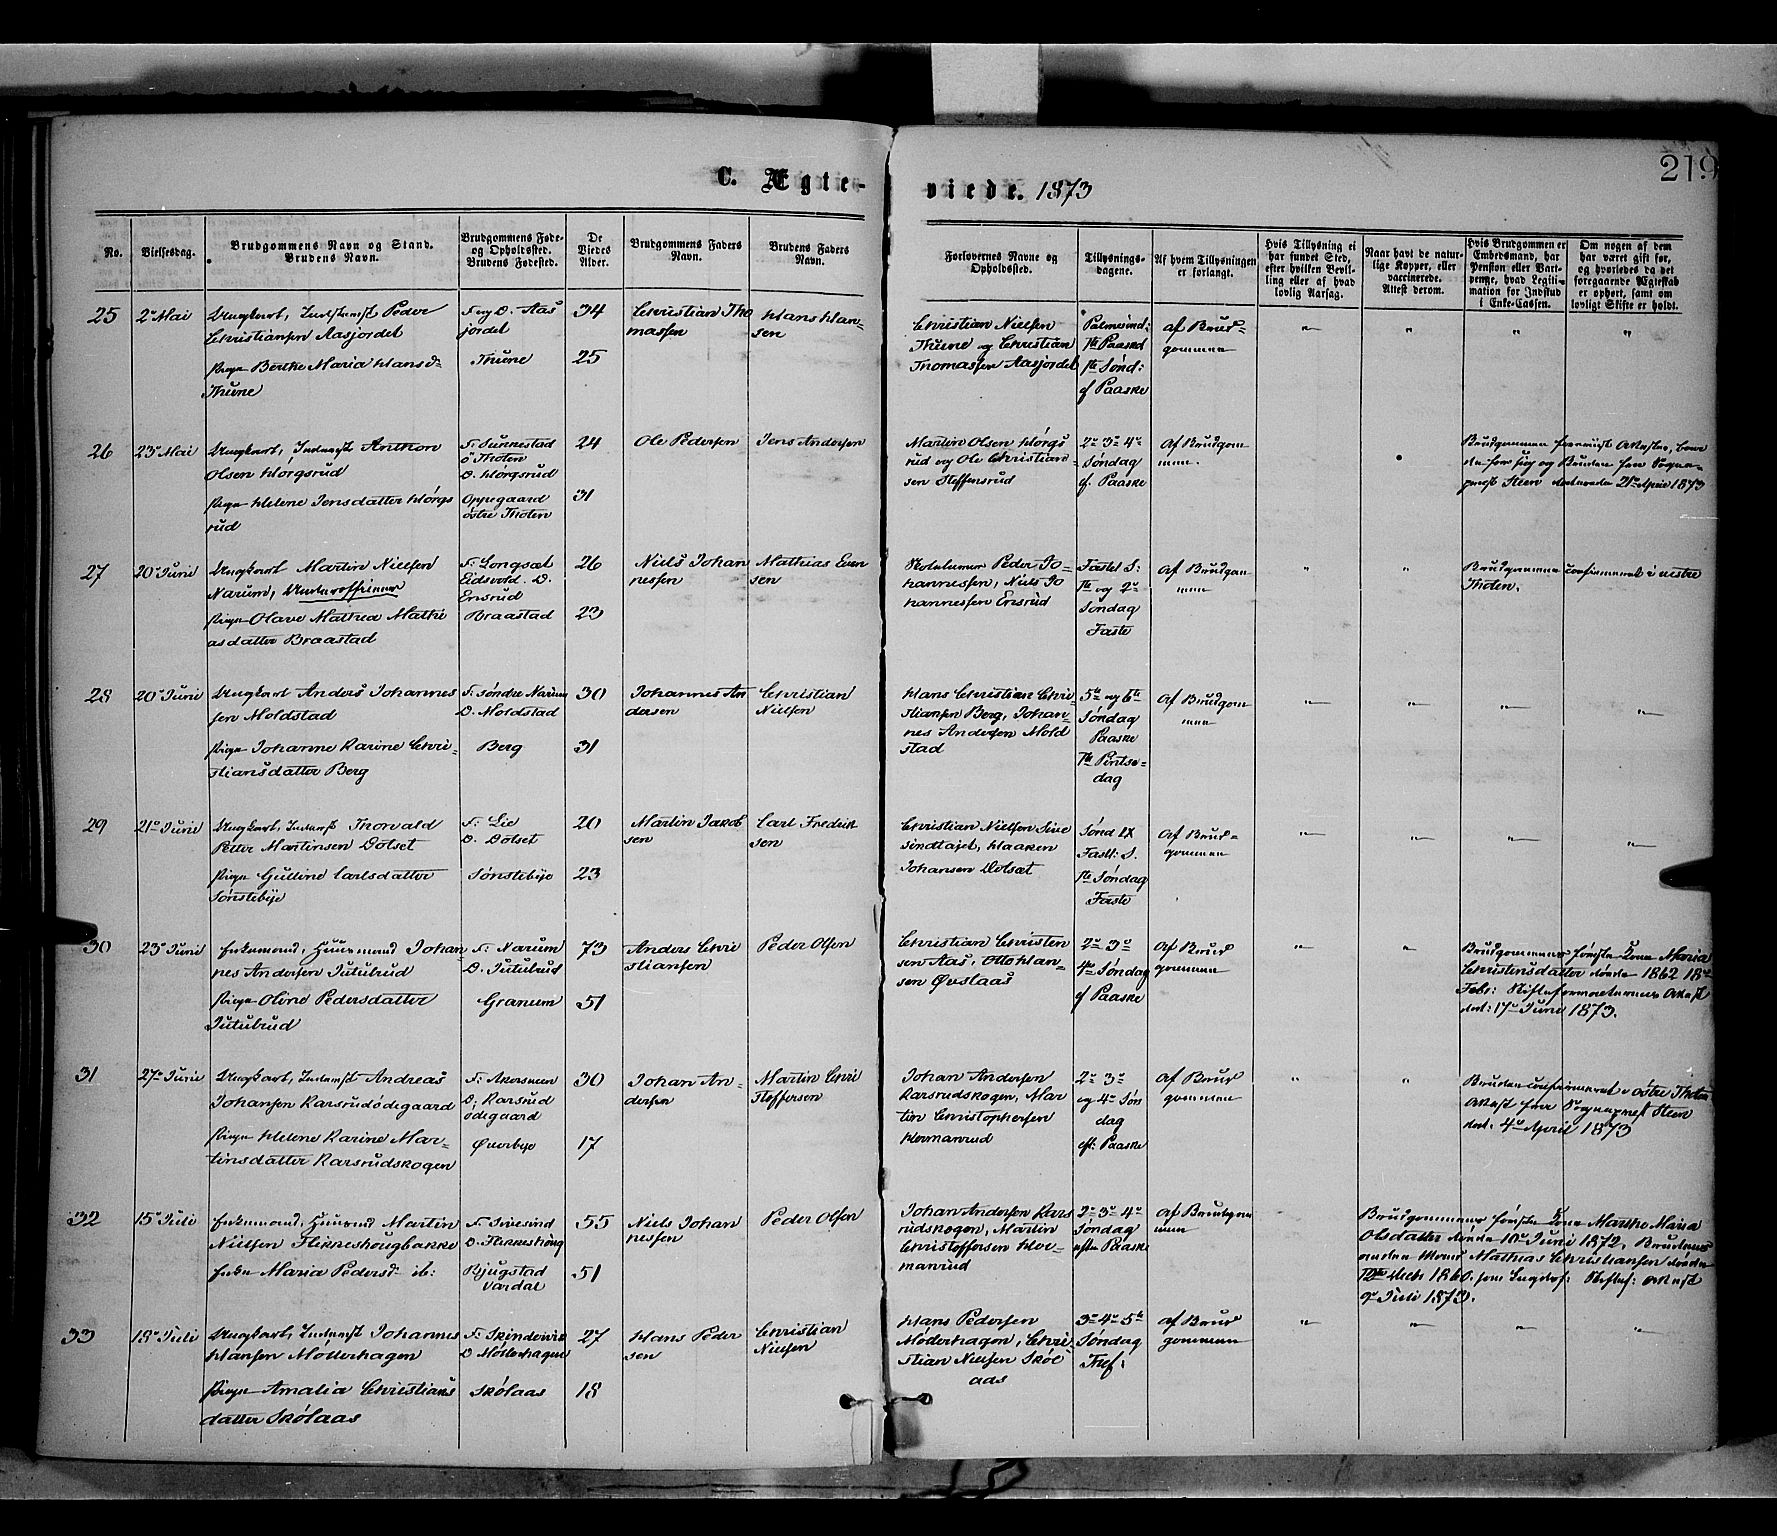 219
C. Ægte-viede. 1873
No.
Vielsesdag.
Brudgommens Navn og Stand.
Brudens Navn.
Brudgommens Føde-
og Opholdssted.
Brudens Fødested.
De
Viedes
Alder.
Brudgommens Faders
Navn.
Brudens Faders
Navn.
Forlovernes Navne og
Opholdssted.
Tillysnings-
dagene.
Af hvem Tillysningen
er forlangt.
Hvis Tillysning ei
har fundet Sted,
efter hvilken Bevil-
ling eller af hvad
lovlig Aarsag.
Naar havt de natur-
lige Kopper, eller
vaccinerede.
Attest derom.
Hvis Brudgommen er
Embedsmand, har
Pension eller Vart-
penge, hvad Legiti-
mation for Indskud
i Enke-Cassen.
Om nogen af dem
har været gift før,
og hvorledes da det
foregaaende Ægteskab
er ophørt, samt om
lovligt Skifte er holdt.
25
2 Mai
Ungkarl, Inderst Peder
Christiansen Aasjordet
Pige Berthe Maria Hansd:
Thune
F og O. Aas
jordet
Thune
34
25
Christian Tho
massen
Hans Han-
sen
Christian Nielsen
Thune og Christian
Thomassen Aasjordet
Palmesønd:
1te Paasked
1te Sønd:
ef Paaske
af Brud-
gommen
26
23 Mai
Ungkarl, Inderst Anthon
Olsen Hørgsrud
Pige Helene Jensdatter Hørgs
rud
F: Sunnestad
ø Thoten
O. Hørgsrud
Oppegaard
østre Thoten
24
31
Ole Pedersen
Jens Andersen
Martin Olsen Hørgs
rud og Ole Christian-
sen Steffensrud
2 3 4
Søndag
ef. Paaske
af Brudgom
men.
Brudgommen foreviist Attester, baade
for sig og Bruden fra Sogne-
prest Steen dateret 21 April 1873
27
20 Juni
Ungkarl Martin Nielsen
Narum, Underofficeer
Pige Olave Mathea Mathi
asdatter Braastad
F: Longsæt
Eidsvold. O.
Ensrud
Braastad
26
23
Niels Johan
nessen
Mathias Even
sen
Skolelærer Peder Jo-
hannessen, Niels Jo
hannessen Ensrud
Fastel S:
1te og 2
Søndag
Faste
af Brudgom
men
Brudgommen confirmeret i vestre
Thoten.
28
20 Juni
Ungkarl Anders Johannes
sen Moldstad
Pige Johanne Karine Chri-
stiansdatter Berg
F: søndre Narum
O. Moldstad
Berg
30
31
Johannes An
dersen
Christian
Nielsen
Hans Christian Chri-
stiansen Berg, Johan-
nes Andersen Mold
stad
5te og 6te
Søndag
Paaske
1te Pintse-
dag
af Brudgom
men
29
21 Juni
Ungkarl, Inderst Thorvald
Petter Martinsen Dølset
Pige Gulline Carlsdatter
Sønstebye
F: Lie
O. Dølset
Sønstebye
20
23
Martin Jakob
sen
Carl Fredrik
sen
Christian Nielsen Sive
sindtajet, Haaken
Johansen Dølsæt
Sønd LX
Fastl: S.
1te Søndag
Faste
af Brud-
gommen
30
23 Juni
Enkemand, Huusmand Johan
nes Andersen Jutulrud
Pige Oline Pedersdatter
Jutulrud
F: Narum
O. Jutulrud
Granum
73
51
Anders Chri
stiansen
Peder Olsen
Christian Christen
sen Aas, Otto Han-
sen Øvslaas
2 3
4de Søndag
ef Paaske
af Brud
gommen
Brudgommens første Kone Maria
Christensdatter døde 1862 18de
Febr: Skifteforvalterens Attest
dat: 17 Juni 1873.
31
27 Juni
Ungkarl, Inderst Andreas
Johansen Karsrudødegaard
Pige Helene Karine Mar-
tinsdatter Karsrudskogen
F: Akersveen
O. Karsrud
ødegaard
Øverbye
30
17
Johan An-
dersen
Martin Chri
stoffersen
Johan Andersen
Karsrudskogen, Mar
tin Christophersen
Hovmanrud
2 3
og 4 Søn
dag
eft: Paaske
af Brud
gommen
Bruden confirmeret i østre Thoten
Attest fra Sogneprest Steen
dat: 4 April 1873
32
15 Juli
Enkemand, Huusmd Martin
Nielsen Flikkeshougbakke
Enke Maria Pedersd: ib:
F. Sivesind
O. Flikkeshoug
Bjugstad
Vardal
55
51
Niels Johan
nessen
Peder Olsen
Johan Andersen Kars
rudskogen, Martin
Christoffersen Hov-
manrud
2 3 4
Søndag
efter Paaske
af Brudgom
men
Brudgommens første Kone Marthe Maria
Olsdatter døde 10 Juni 1872, Brudens
anden Mand Mathias Christiansen døde
Decbr 1860. Skiftef: Attest
9 Juli 1873.
33
18 Juli
Ungkarl, Inderst Johannes
Hansen Møllerhagen
Pige Amalia Christians
datter Skølaas
F: Skindervie
O Møllerhagen
Skølaas
27
18
Hans Peder
sen
Christian
Nielsen
Hans Pedersen
Møllerhagen, Chri-
stian Nielsen Skøl
aas
3 4 5te
Søndag
Tref:
af Brud
gommen